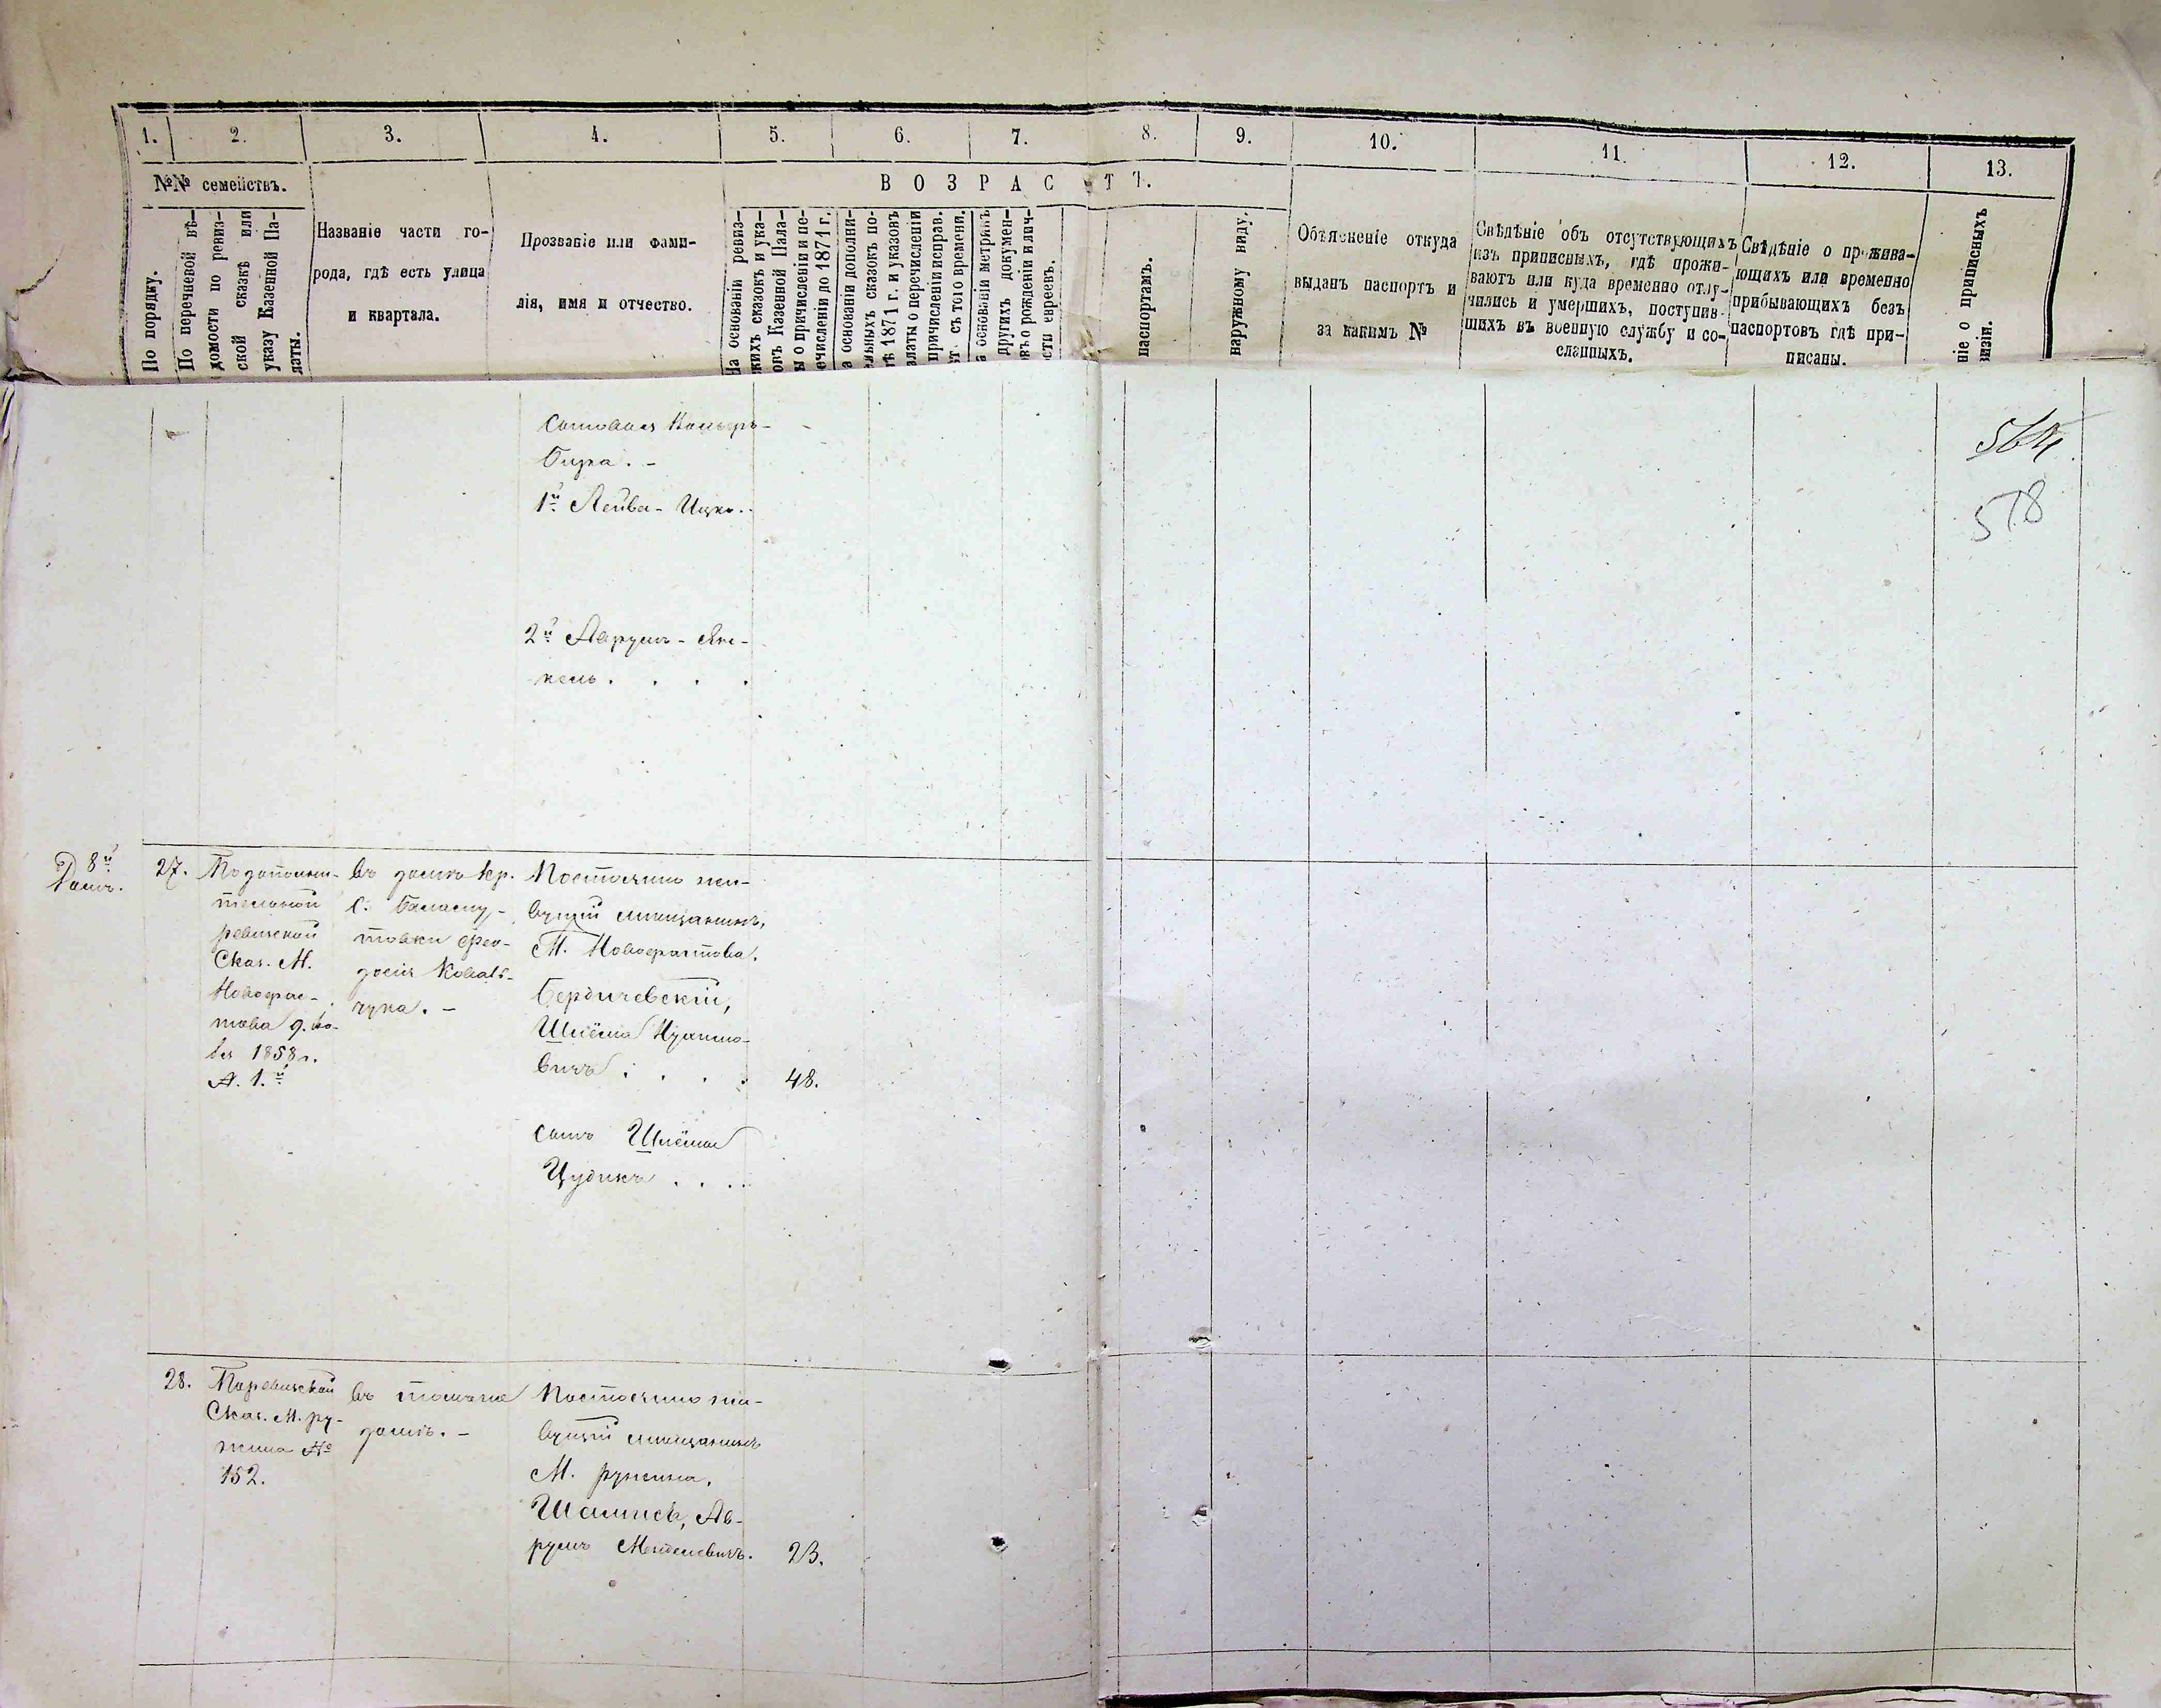 1. 2. 3. 4. 5. 6. 7. 8. 9. 10. 11. 12. 13.
№№ семействъ.
В О З Р А С Т Ъ.
По порядку.
По перечневой вѣ-
домости по ревиз-
ской сказкѣ или
указу Казенной Па-
латы.
Названіе части го-
рода, гдѣ есть улица
и квартала.
Прозваніе или фами-
лія, имя и отчество.
На основаніи ревиз-
скихъ сказокъ и ука-
зовъ Казенной Пала-
ты о причисленіи и пе-
речисленіи до 1871 г.
а основаніи дополни-
ельныхъ сказокъ по-
1871 г. и указовъ
латы о перечисленіи
причисленіи исправ.
съ того времени.
а основаніи метрикъ
другихъ докумен-
овъ о рожденіи и лич-
сти евреевъ.
паспортамъ.
наружному виду.
Объясненіе откуда
выданъ паспортъ и
за какимъ №
Свѣдѣніе объ отсутствующихъ
изъ приписныхъ, гдѣ прожи-
ваютъ или куда временно отлу-
чились и умершихъ, поступив-
шихъ въ военную службу и со-
сланныхъ.
Свѣдѣніе о прожива-
ющихъ или временно
прибывающихъ безъ
паспортовъ гдѣ при-
писаны.
ніе о приписныхъ
визіи.
578
1й Лейба-Ицко.
2й Аврумъ-Ян-
кель. . . .
8й
Домъ.
27.
По дополни-
тельной
ревизской
Сказ. М.
Новофас-
това
1858 г.
№ 1.й
въ домѣ кр.
с. Баламу-
товки Фео-
досія Коваль-
чука. -
Постоянно жи-
вущій мѣщанинъ,
М. Новофастова.
Бердичевскій,
Шлёма Нухимо-
вичъ . . . .
48.
сынъ Шлёмы
Цудикъ . . . .
28.
По ревизской
Сказ. М. Ру-
жина №
152.
въ томъ же
домѣ. -
Постоянно жи-
вущій мѣщанинъ
М. Ружина,
Шамисъ, Ав-
румъ Менделевичъ.
23.